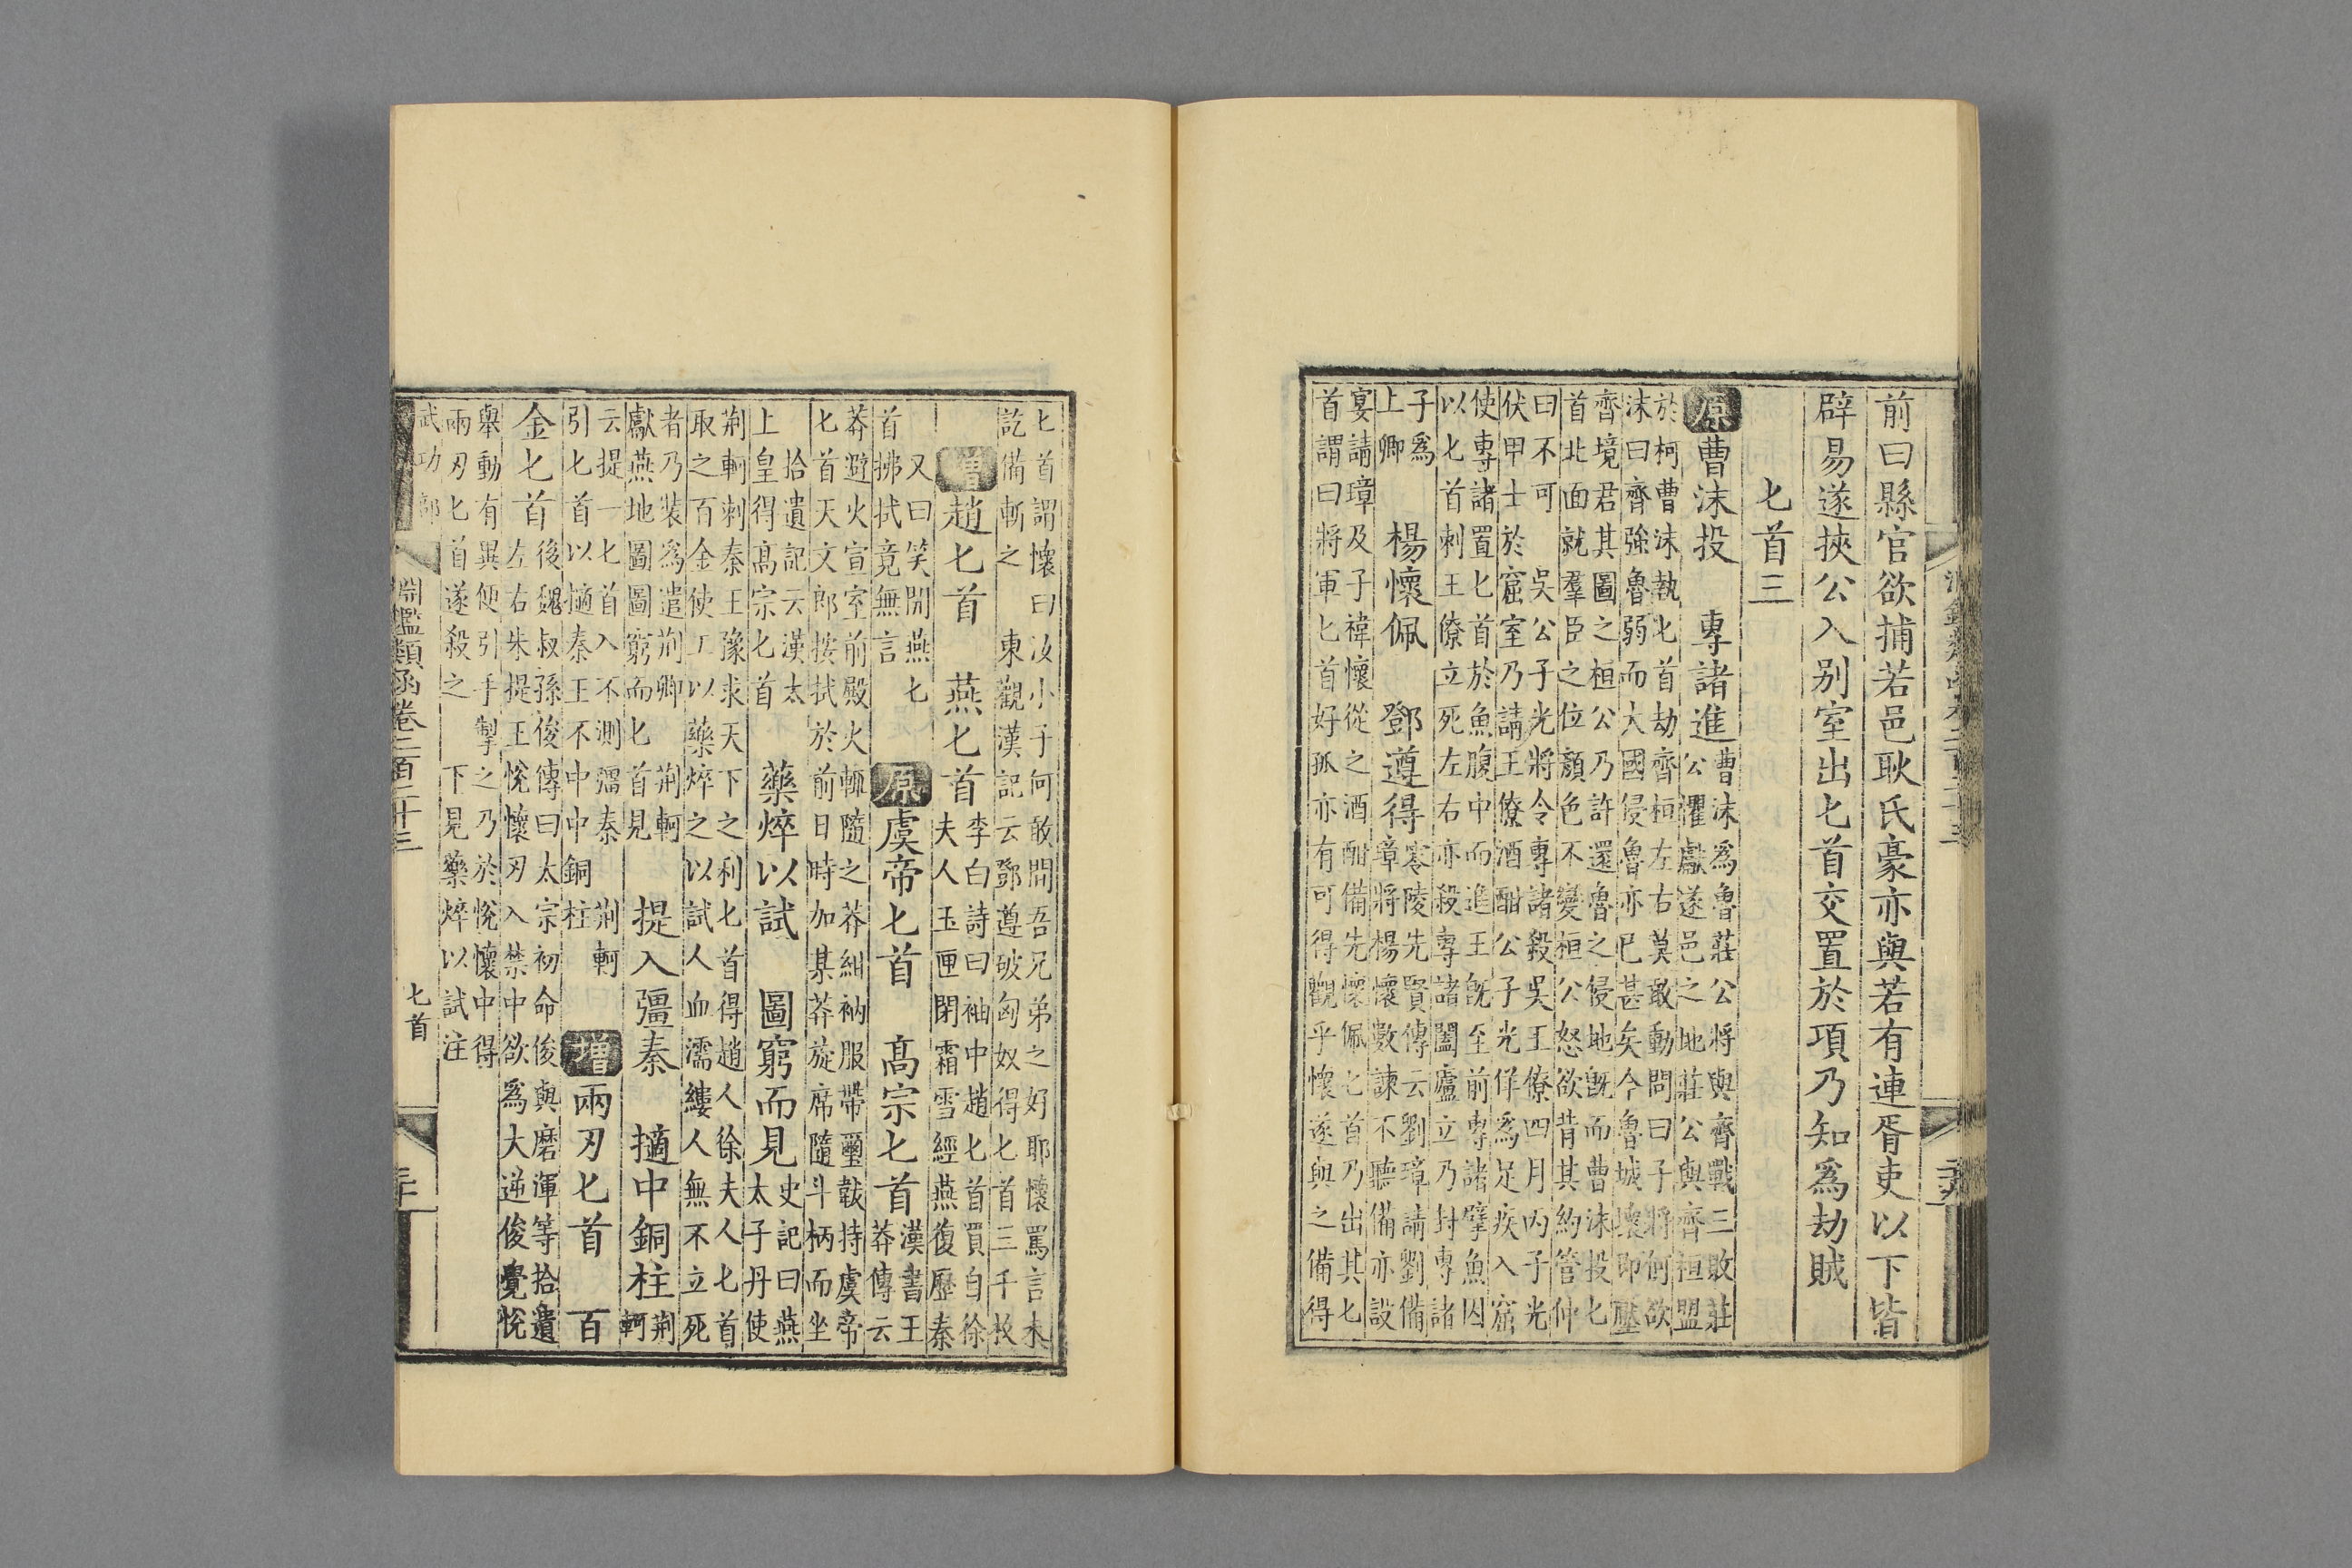 前曰縣官欲捕若邑耿氏豪亦與若有連胥吏以下皆
辟易遂挾公入别室出匕首交置於項乃知爲劫賊
匕首三
原曹沫投　專諸進
曹沫爲魯莊公將與齊戰三敗莊
公懼獻遂邑之地莊公與齊桓盟
於柯曹沫執匕首劫齊桓左右莫敢動問曰子將何欲
沫曰齊強魯弱而大國侵魯亦已甚矣今魯城壞即壓
齊境君其圖之桓公乃許還魯之侵地旣而曹沫投匕
首北面就羣臣之位顏色不變桓公怒欲背其約管仲
曰不可　吳公子光將令專諸殺吳王僚四月丙子光
伏甲士於窟室乃請王僚酒酣公子光佯爲足疾入窟
使專諸置匕首於魚腹中而進王旣至前專諸擘魚因
以匕首刺王僚立死左右亦殺專諸闔廬立乃封專諸
子爲
上卿
楊懷佩　鄧遵得
零陵先賢傳云劉璋請劉備
章將楊懷數諫不聽備亦設
宴請璋及子禕懷從之酒酣備先懷佩匕首乃出其匕
首謂曰將軍匕首好孤亦有可得觀乎懷遂與之備得
匕首謂懷曰汝小子何敢間吾兄弟之好耶懷罵言未
訖備斬之　東觀漢記云鄧遵破匈奴得匕首三千枚
增趙匕首　燕匕首
李白詩曰袖中趙匕首買自徐
夫人玉匣閉霜雪經燕復歷秦
又曰笑開燕匕
首拂拭竟無言
原虞帝匕首　高宗匕首
漢書王
莽傳云
莽避火宣室前殿火輒隨之莽紺袀服帶璽韍持虞帝
匕首天文郎按拭於前日時加某莽旋席隨斗柄而坐
拾遺記云漢太
上皇得高宗匕首
藥焠以試　圖窮而見
史記曰燕
太子丹使
荆軻刺秦王豫求天下之利匕首得趙人徐夫人匕首
取之百金使工以藥焠之以試人血濡縷人無不立死
者乃裝爲遣荆卿　荆軻
獻燕地圖圖窮而匕首見
提入彊秦　擿中銅柱
荆
軻
云提一匕首入不測彊秦　荆軻
引匕首以擿秦王不中中銅柱
增兩刃匕首　百
金匕首
後魏叔孫俊傳曰太宗初命俊與磨渾等拾遺
左右朱提王悅懷刃入禁中欲爲大逆俊覺悅
舉動有異便引手掣之乃於悅懷中得
兩刃匕首遂殺之　下見藥焠以試注
武功部
淵鑑類函卷二百二十三　匕首　三十